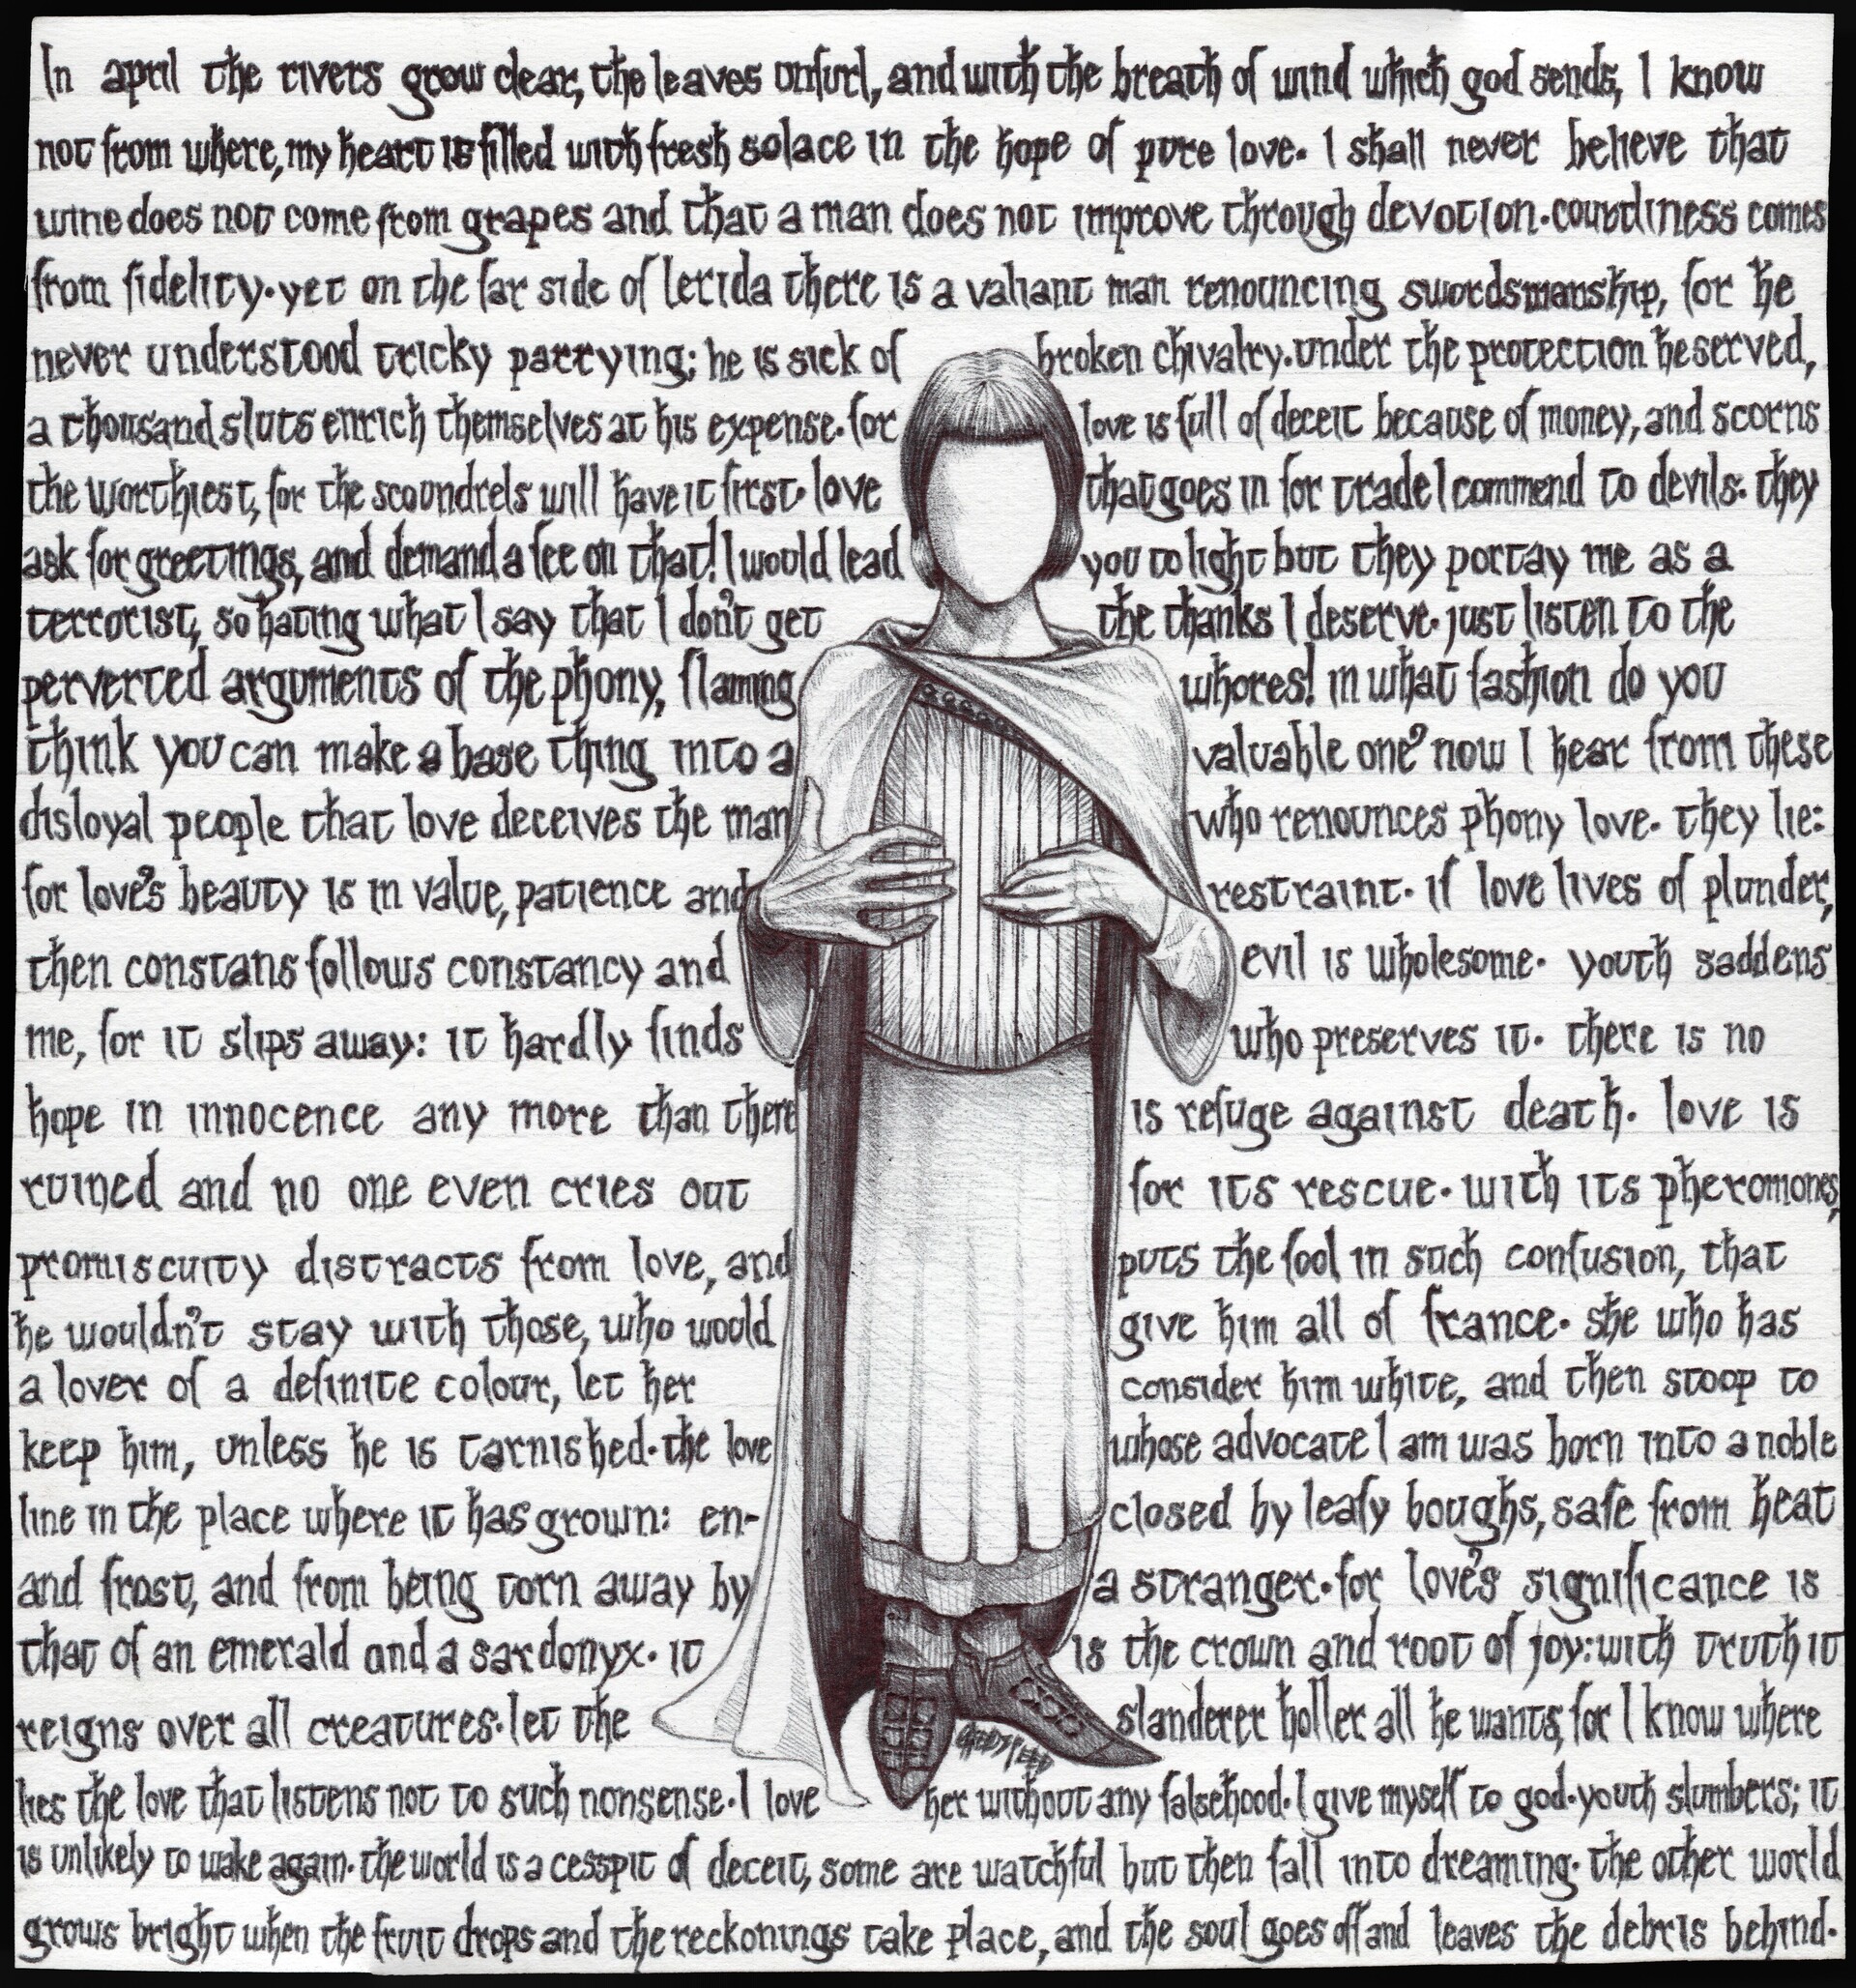 In april the rivers grow clear, the leaves unfurl, and with the breath of wind which god sends, I know
not from where, my heart is filled with fresh solace in the hope of pure love. I shall never believe that
wine does not come from grapes and that a man does not improve through devotion. courtliness comes
from fidelity. yet on the far side of lerida there is a valiant man renouncing swordsmanship, for he
never understood tricky parrying: he is sick of broken chivalry. under the protection he served,
a thousand sluts enrich themselves at his expense. for love is full of deceit because of money, and scorns
the worthiest, for the scoundrels will have it first. love that goes in for trade I commend to devils. they
ask for greetings, and demand a fee on that! I would lead you to light but they portay me as a
terrorist, so hating what I say that I don't get the thanks I deserve. just listen to the
perverted arguments of the phony, flaming whores! in what fashion do you
think you can make a base thing into a valuable one? now I hear from these
disloyal people that love deceives the man who renounces phony love. they lie:
for love's beauty is in value, patience and restraint. if love lives of plunder,
then constans follows constancy and evil is wholesome. youth saddens
me, for it slips away: it hardly finds who preserves it. there is no
hope in innocence any more than there is refuge against death. love is
ruined and no one even cries out for its rescue. with its pheromones,
promiscuity distracts from love, and puts the fool in such confusion, that
he wouldn't stay with those, who would give him all of france. she who has
a lover of a definite colour, let her consider him white, and then stoop to
keep him, unless he is tarnished. the love whose advocate I am was born into a noble
line in the place where it has grown: en-closed by leafy boughs, safe from heat
and frost, and from being torn away by a stranger. for love's significance is
that of an emerald and a sardonyx. it is the crown and root of joy: with truth it
reigns over all creatures. let the slanderer holler all he wants, for I know where
lies the love that listens not to such nonsense. I love her without any falsehood. I give myself to god. youth slumbers; it
is unlikely to wake again. the world is a cesspit of deceit, some are watchful but then fall into dreaming. the other world
grows bright when the fruit drops and the reckonings take place, and the soul goes off and leaves the debris behind.